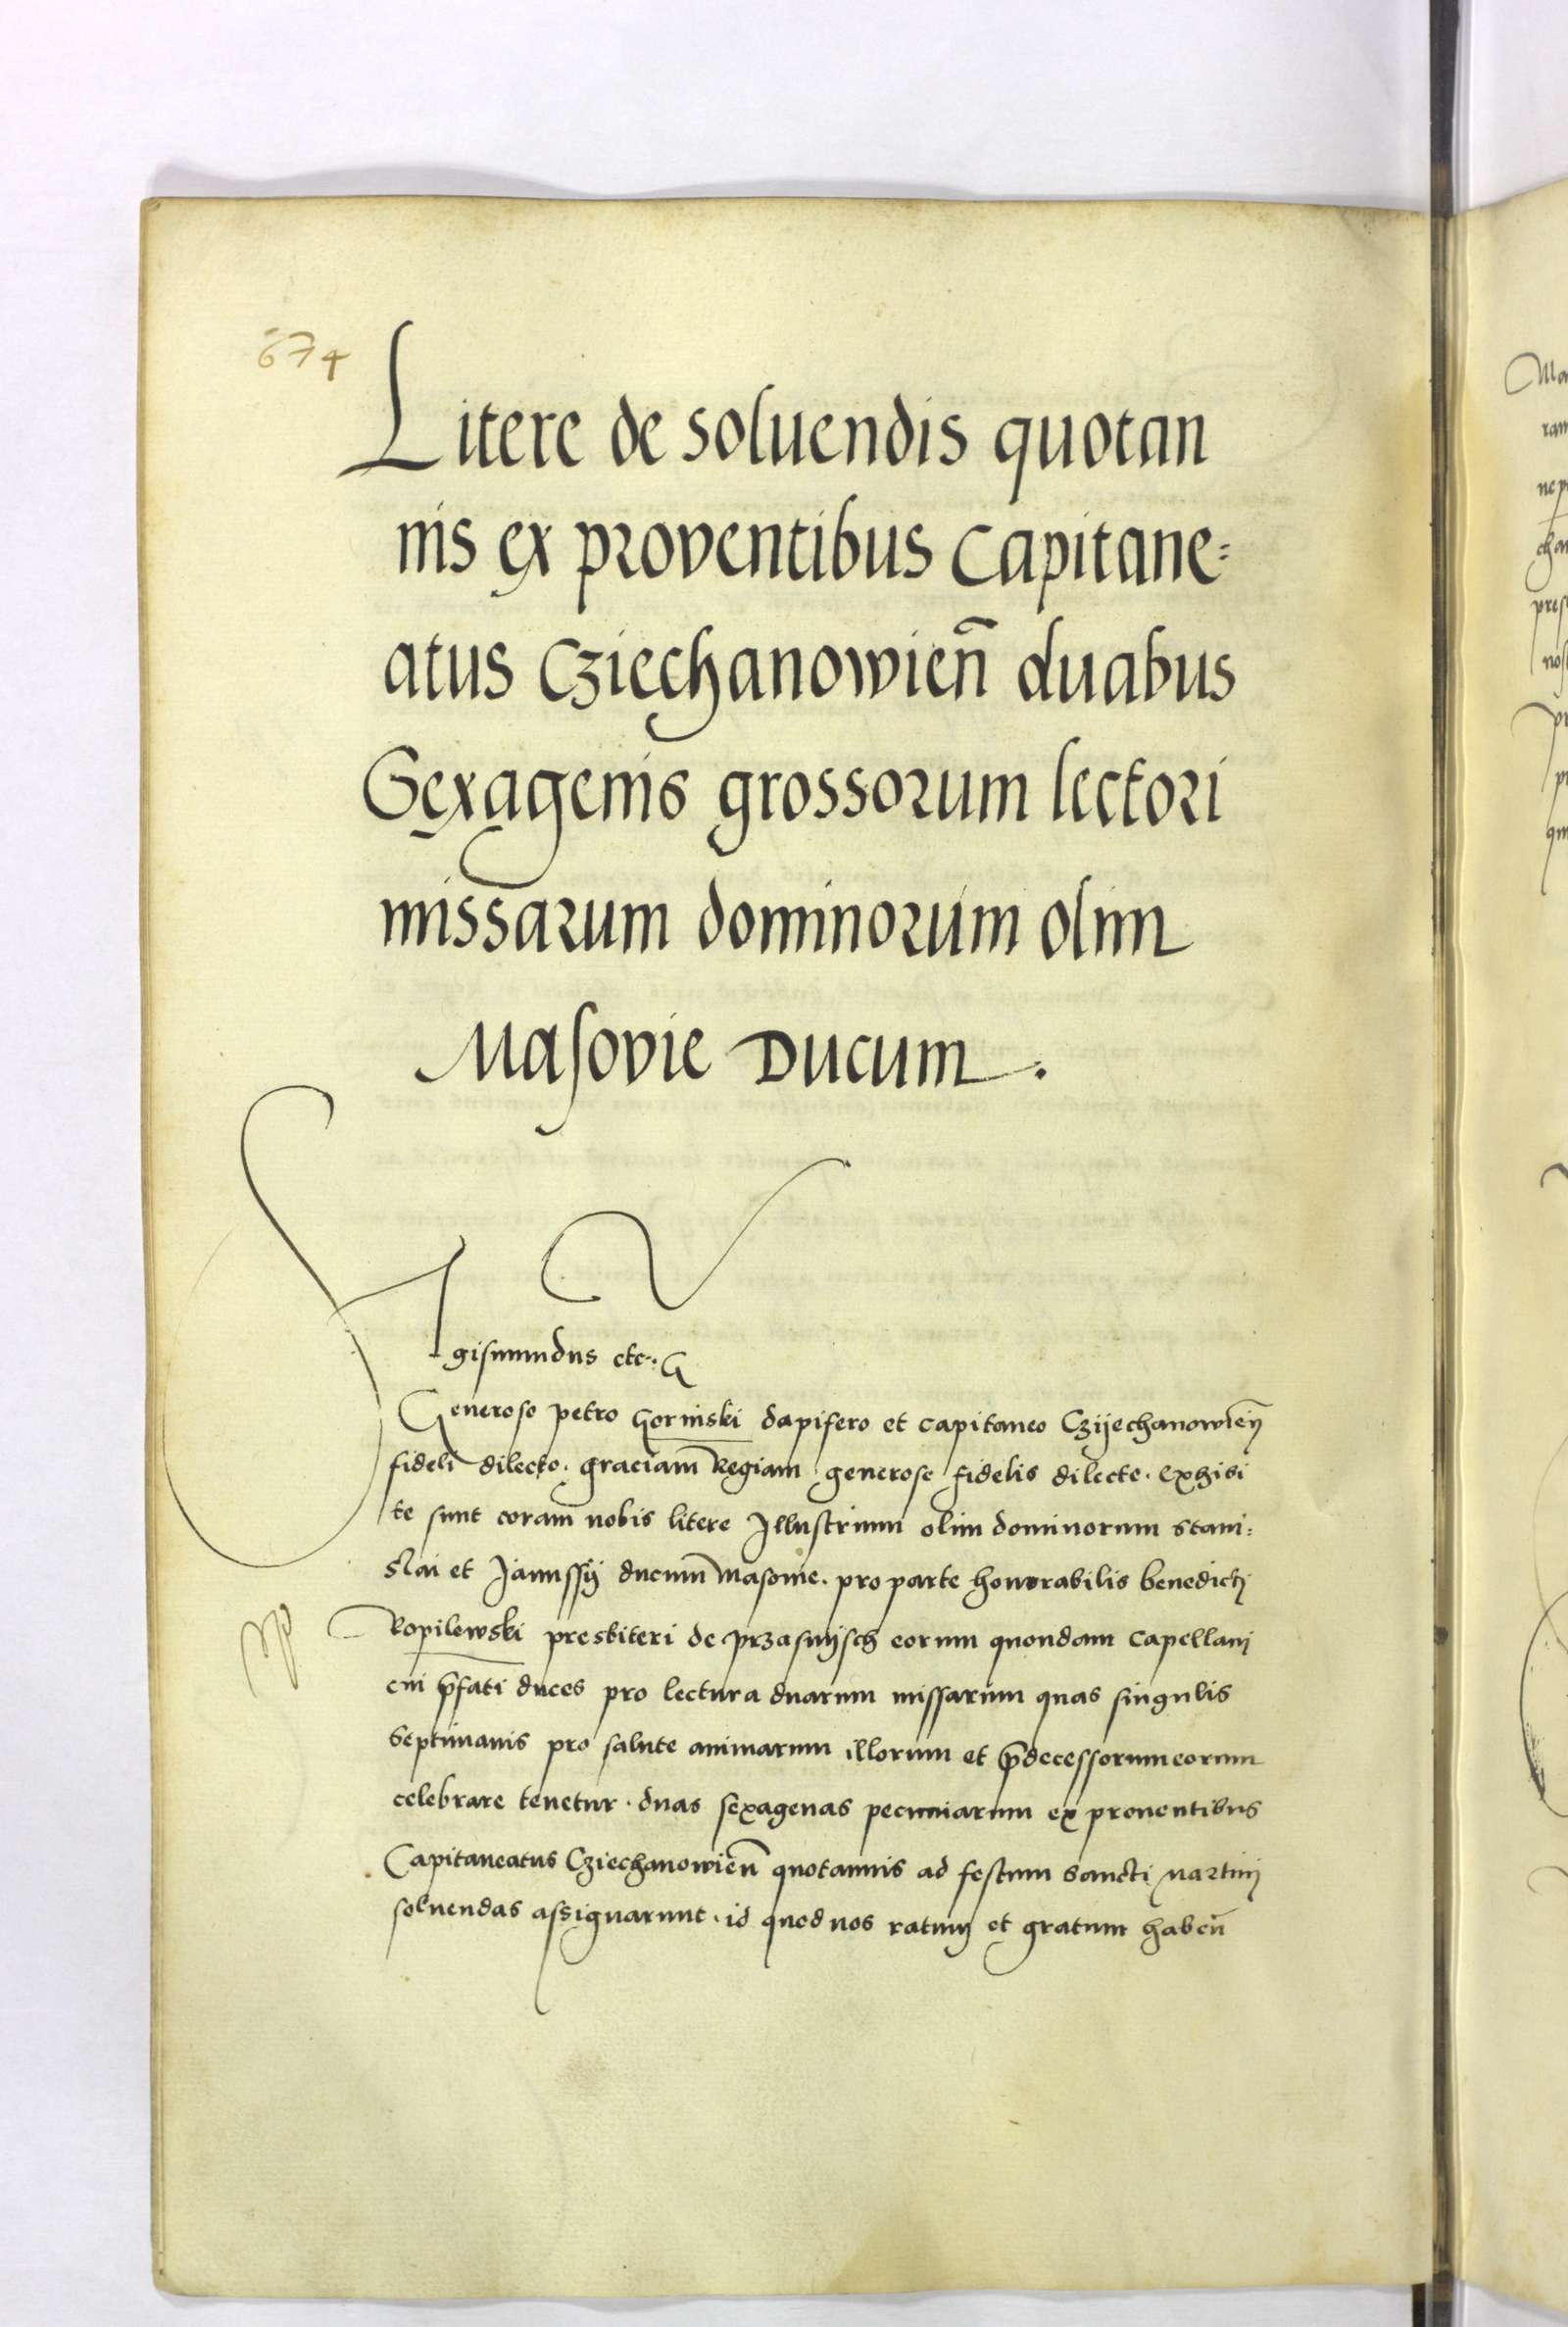 674
Litere de soluendis quotan
nis ex proventibus Capitane=
atus Cziechanowien̄ duabus
Sexagenis grossorum lectori
missarum dominorum olim
Masovie Ducum.
Sigismundus etc. G
Generoso petro Gorinski dapifero et capitaneo Czijechanowien̄
fideli dilecto. graciam Regiam. generose fidelis dilecte. Exhibi
te sunt coram nobis litere Illustrium olim dominorum stani=
slai et Janussij ducum masouie. pro parte honorabilis benedicti
Kopilewski presbiteri de przasnijsch eorum quondam capellani
cui p̄fati duces pro lectura duarum missarum quas singulis
septimanis pro salute animarum illorum et p̄decessorum eorum
celebrare tenetur. duas sexagenas pecuniarum ex prouentibus
Capitaneatus Cziechanowien̄ quotannis ad festum sancti martini
soluendas assignarunt. id quod nos ratum et gratum haben̄